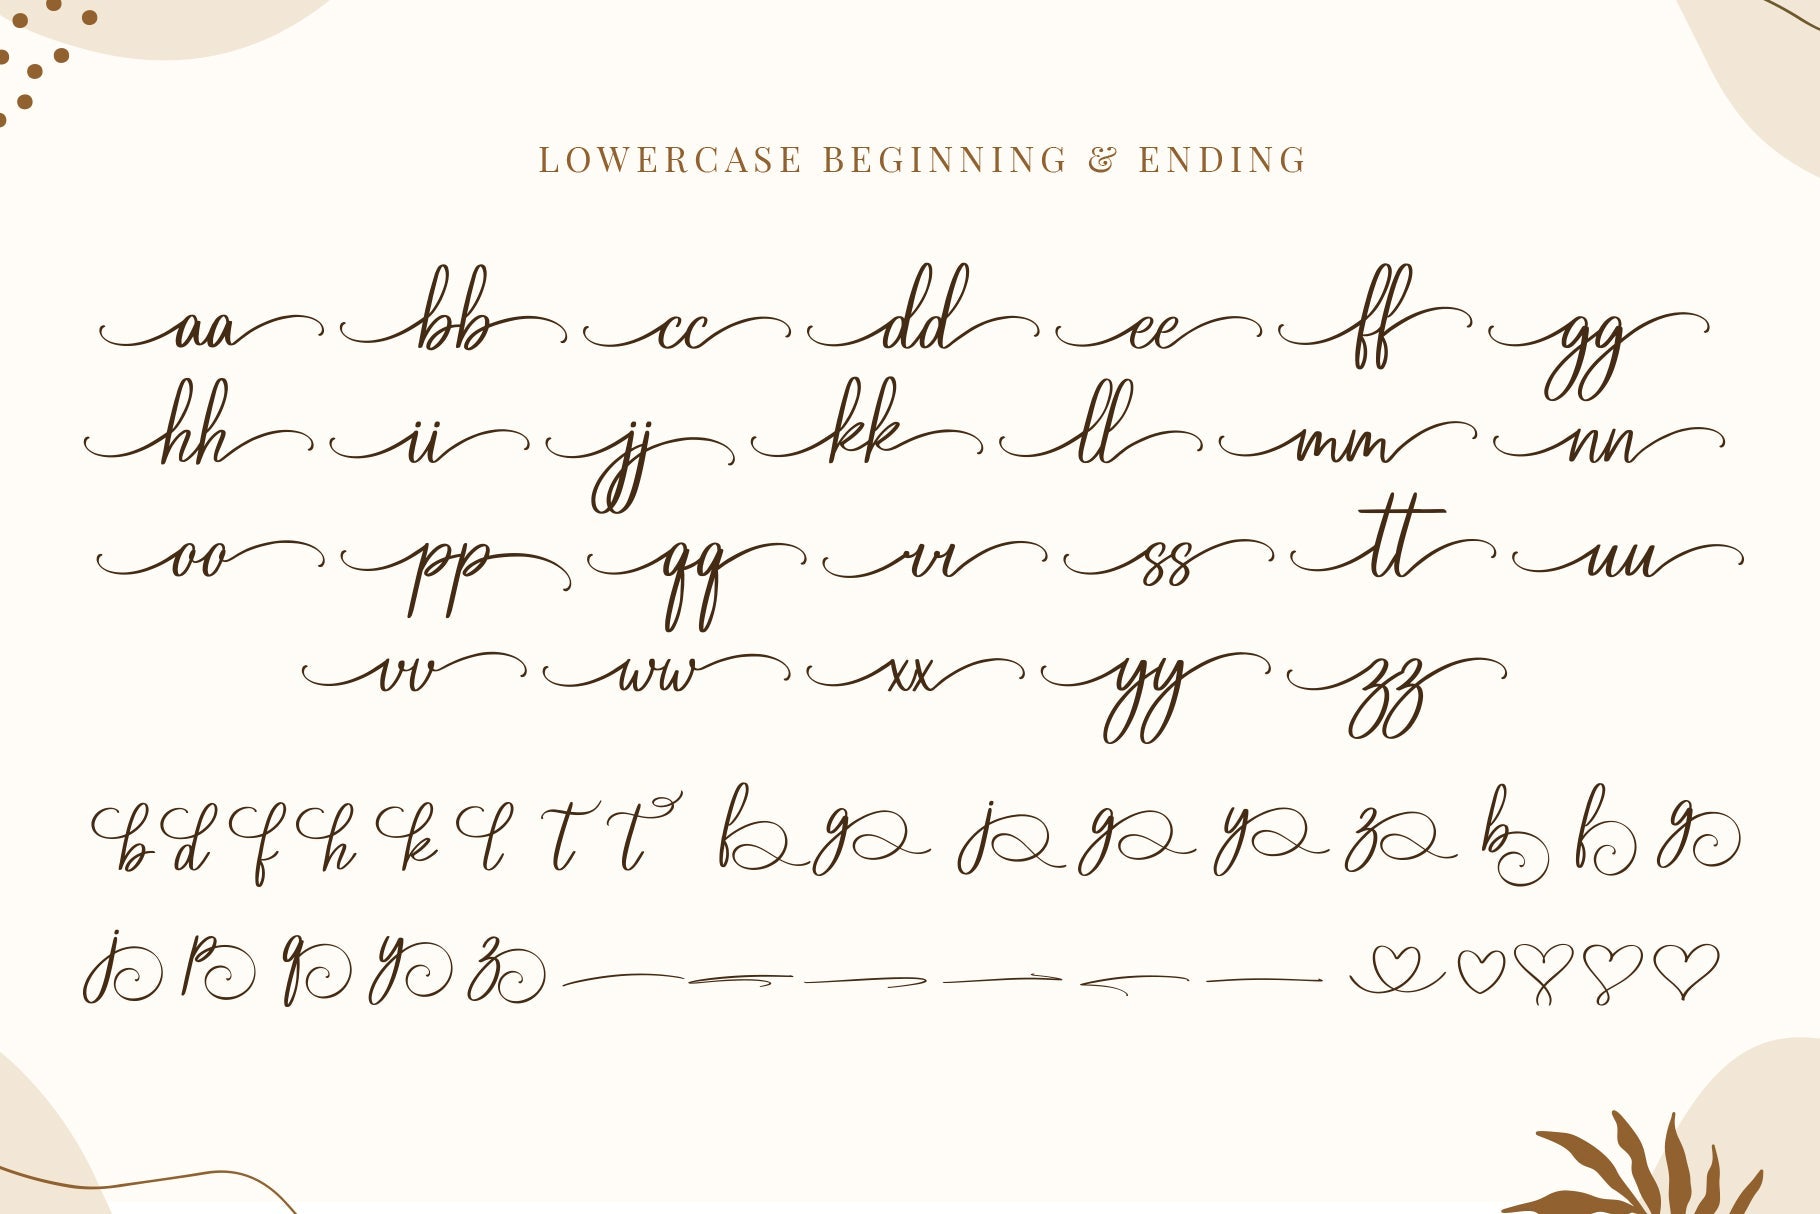 LOWERCASE BEGINNING & ENDING
aa bb cc dd ee ff gg
hh ii jj kk ll mm nn
oo pp qq rr ss tt uu
vv ww xx yy zz
b d f h k l t t f g j g y z b f g
j p q y z